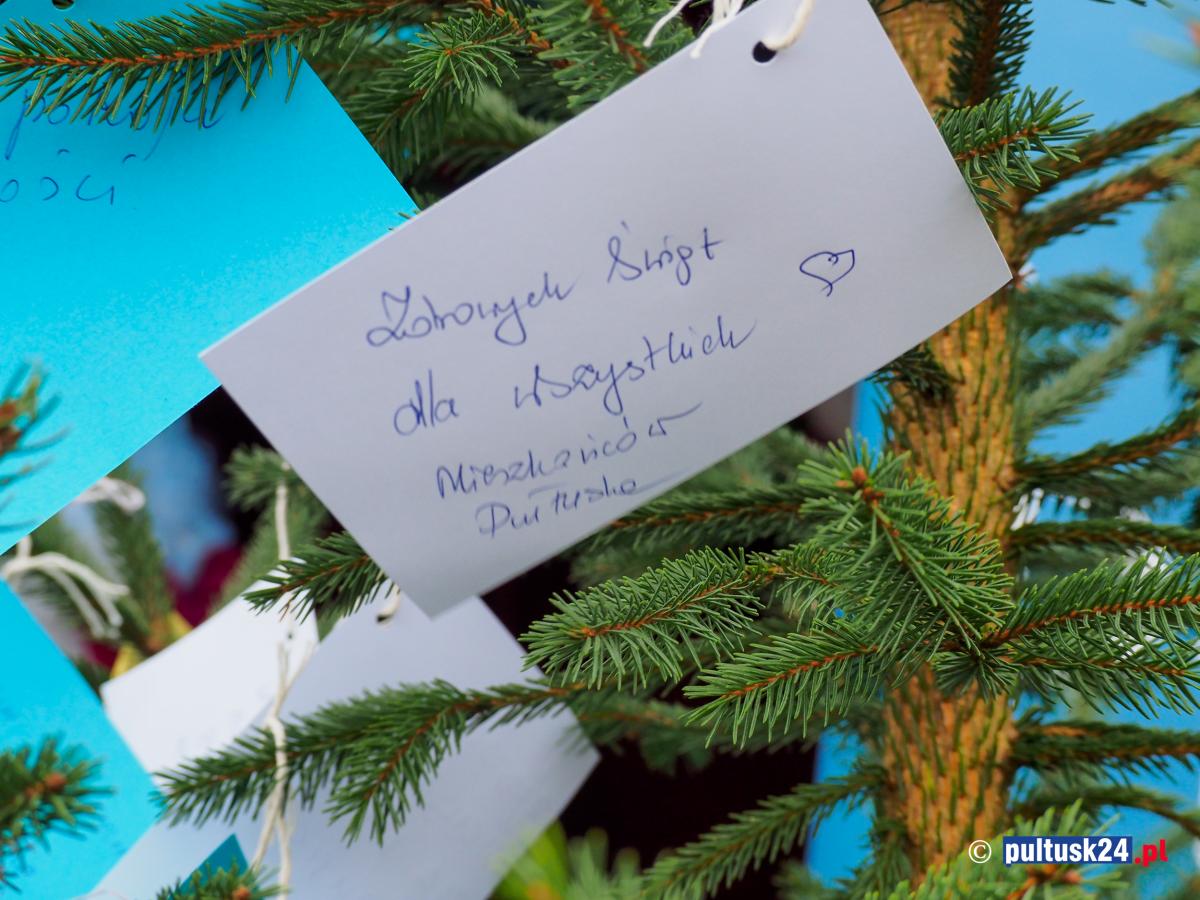 ości
Zdrowych Świąt
dla wszystkich
Mieszkańców
Pułtuska
© pultusk24.pl